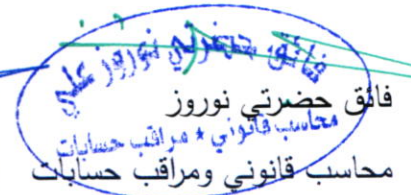 فائق حضرتي نوروز علي
محاسب قانوني * مراقب حسابات
فائق حضرتي نوروز
محاسب قانوني ومراقب حسابات